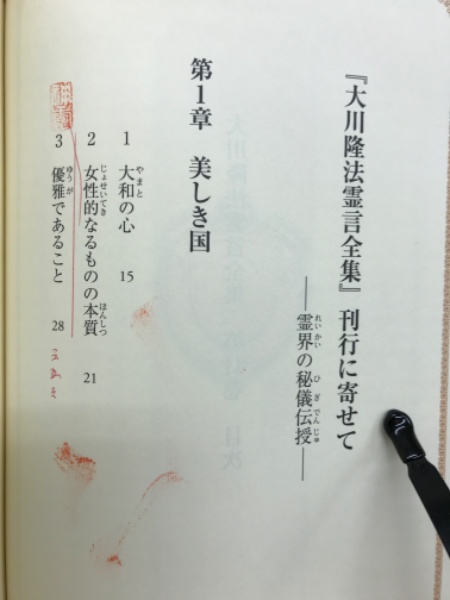 『大川隆法霊言全集』刊行に寄せて
――霊界の秘儀伝授――
第1章 美しき国
1 大和の心 15
2 女性的なるものの本質 21
3 優雅であること 28